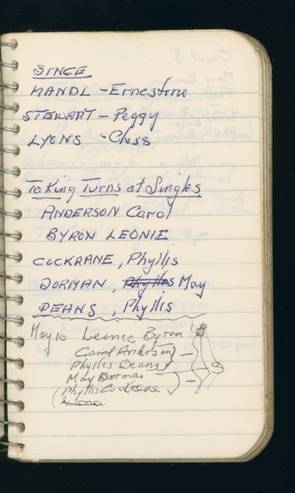 SINCE
HANDL - Ernestine
STEWART - Peggy
LYONS - Chess
Taking Turns at Singles
ANDERSON Carol
BYRON LEONIE
COCKRANE, Phyllis
DORMAN, Phyllis May
DEANS, Phyllis
May 10 Leonie Byron
Carol Anderson
Phyllis Deans
May Dorman
(Phyllis Cockrane